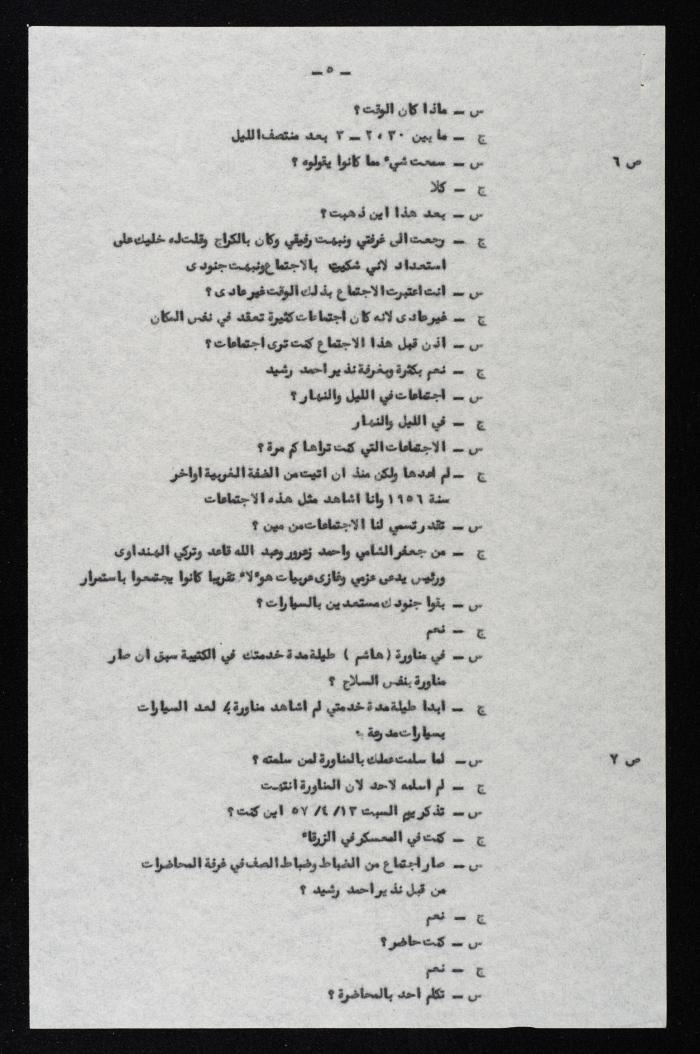 ـ ٥ ـ
س ـ ماذا كان الوقت ؟
ج ـ ما بين ٢٫٣٠ ـ ٣ بعد منتصف الليل
ص ٦ س ـ سمعت شيء مما كانوا يقولوه ؟
ج ـ كلا
س ـ بعد هذا اين ذهبت ؟
ج ـ رجعت الى غرفتي ونبهت رفيقي وكان بالكراج وقلت له خليك على
استعداد لاني شكيت بالاجتماع ونبهت جنودى
س ـ انت اعتبرت الاجتماع بذلك الوقت غير عادى ؟
ج ـ غير عادى لانه كان اجتماعات كثيرة تعقد في نفس المكان
س ـ اذن قبل هذا الاجتماع كنت ترى اجتماعات ؟
ج ـ نعم بكثرة وبغرفة نذير احمد رشيد
س ـ اجتماعات في الليل والنهار ؟
ج ـ في الليل والنهار
س ـ الاجتماعات التي كنت تراها كم مرة ؟
ج ـ لم اعدها ولكن منذ ان اتيت من الضفة الغربية اواخر
سنة ١٩٥٦ وانا اشاهد مثل هذه الاجتماعات
س ـ تقدر تسمي لنا الاجتماعات من مين ؟
ج ـ من جعفر الشامي واحمد زعرور وعبد الله قاعد وتركي الهنداوى
ورئيس يدعى عزمي وغازى عربيات هوٴلاء تقريبا كانوا يجتمعوا باستمرار
س ـ بقوا جنودك مستعدين بالسيارات ؟
ج ـ نعم
س ـ في مناورة ( هاشم ) طيلة مدة خدمتك في الكتيبة سبق ان صار
مناورة بنفس السلاح ؟
ج ـ ابدا طيلة مدة خدمتي لم اشاهد مناورة لعد السيارات
بسيارات مدرعة ٠
ص ٧ س ـ لما سلمت عملك بالمناورة لمن سلمته ؟
ج ـ لم اسلمه لاحد لان المناورة انتهت
س ـ تذكر يوم السبت ١٣/ ٤/ ٥٧ اين كنت ؟
ج ـ كنت في المعسكر في الزرقاء
س ـ صار اجتماع من الضباط وضباط الصف في غرفة المحاضرات
من قبل نذير احمد رشيد ؟
ج ـ نعم
س ـ كنت حاضر ؟
ج ـ نعم
س ـ تكلم احد بالمحاضرة ؟